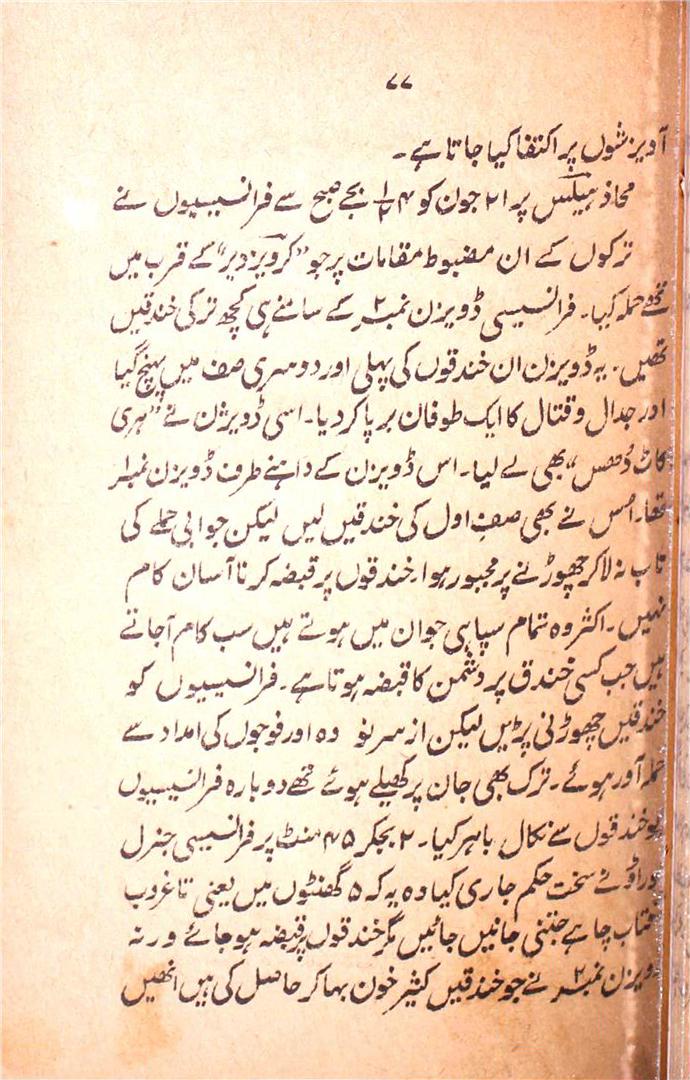 ۷۷
آویزشوں پر اکتفا کیا جاتا ہے۔
محاذ ہیلس پر ۲۱ جون کو ۴ ۱/۲ بجے صبح سے فرانسیسیوں نے
ترکوں کے ان مضبوط مقامات پر جو "کرویزدیر" کے قرب میں
تھے حملہ کیا۔ فرانسیسی ڈویزن نمبر ۲ کے سامنے ہی کچھ ترکی خندقیں
تھیں۔ یہ ڈویزن ان خندقوں کی پہلی اور دوسری صف میں پہنچ گیا
اور جدال و قتال کا ایک طوفان برپا کر دیا۔ اسی ڈویژن نے "ہری
کاٹ" بھی لے لیا۔ اس ڈویزن کے داہنے طرف ڈویزن نمبر ۱
تھا۔ اُس نے بھی صفِ اول کی خندقیں لیں لیکن جوابی حملے کی
تاب نہ لا کر چھوڑنے پر مجبور ہوا۔ خندقوں پر قبضہ کرنا آسان کام
نہیں۔ اکثر وہ تمام سپاہی جو ان میں ہوتے ہیں سب کام آجاتے
ہیں جب کسی خندق پر دشمن کا قبضہ ہوتا ہے۔ فرانسیسیوں کو
خندقیں چھوڑنی پڑیں لیکن از سر نو وہ اور فوجوں کی امداد سے
حملہ آور ہوئے۔ ترک بھی جان پر کھیلے ہوئے تھے دوبارہ فرانسیسیوں
کو خندقوں سے نکال باہر کیا۔ ۲ بجکر ۴۵ منٹ پر فرانسیسی جنرل
نے سخت حکم جاری کیا وہ یہ کہ ۵ گھنٹوں میں یعنی تا غروب
آفتاب چاہے جتنی جانیں جائیں مگر خندقوں پر قبضہ ہو جائے ورنہ
ڈویزن نمبر ۲ نے جو خندقیں کثیر خون بہا کر حاصل کی ہیں انھیں